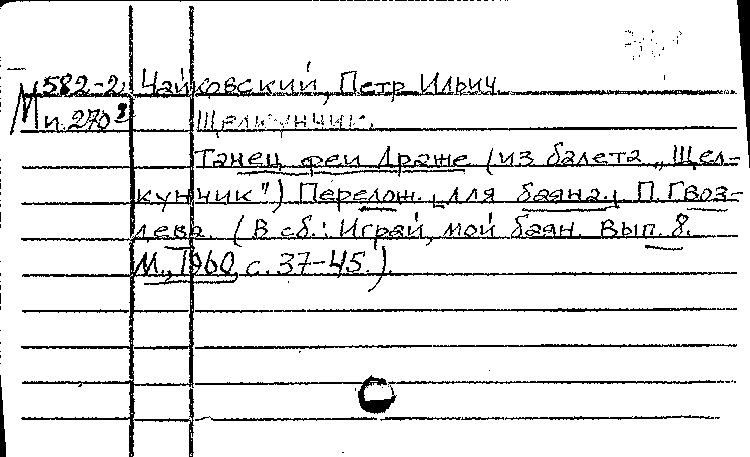 М582-2 Чайковский, Петр Ильич.
Мп.270³ Щелкунчик.
Танец феи Драже (из балета „Щел-
кунчик") Перелож. [для баяна] П. Гвоз-
дева. (В сб.: Играй, мой баян. Вып. 8.
М., 1960, с. 37-45.).